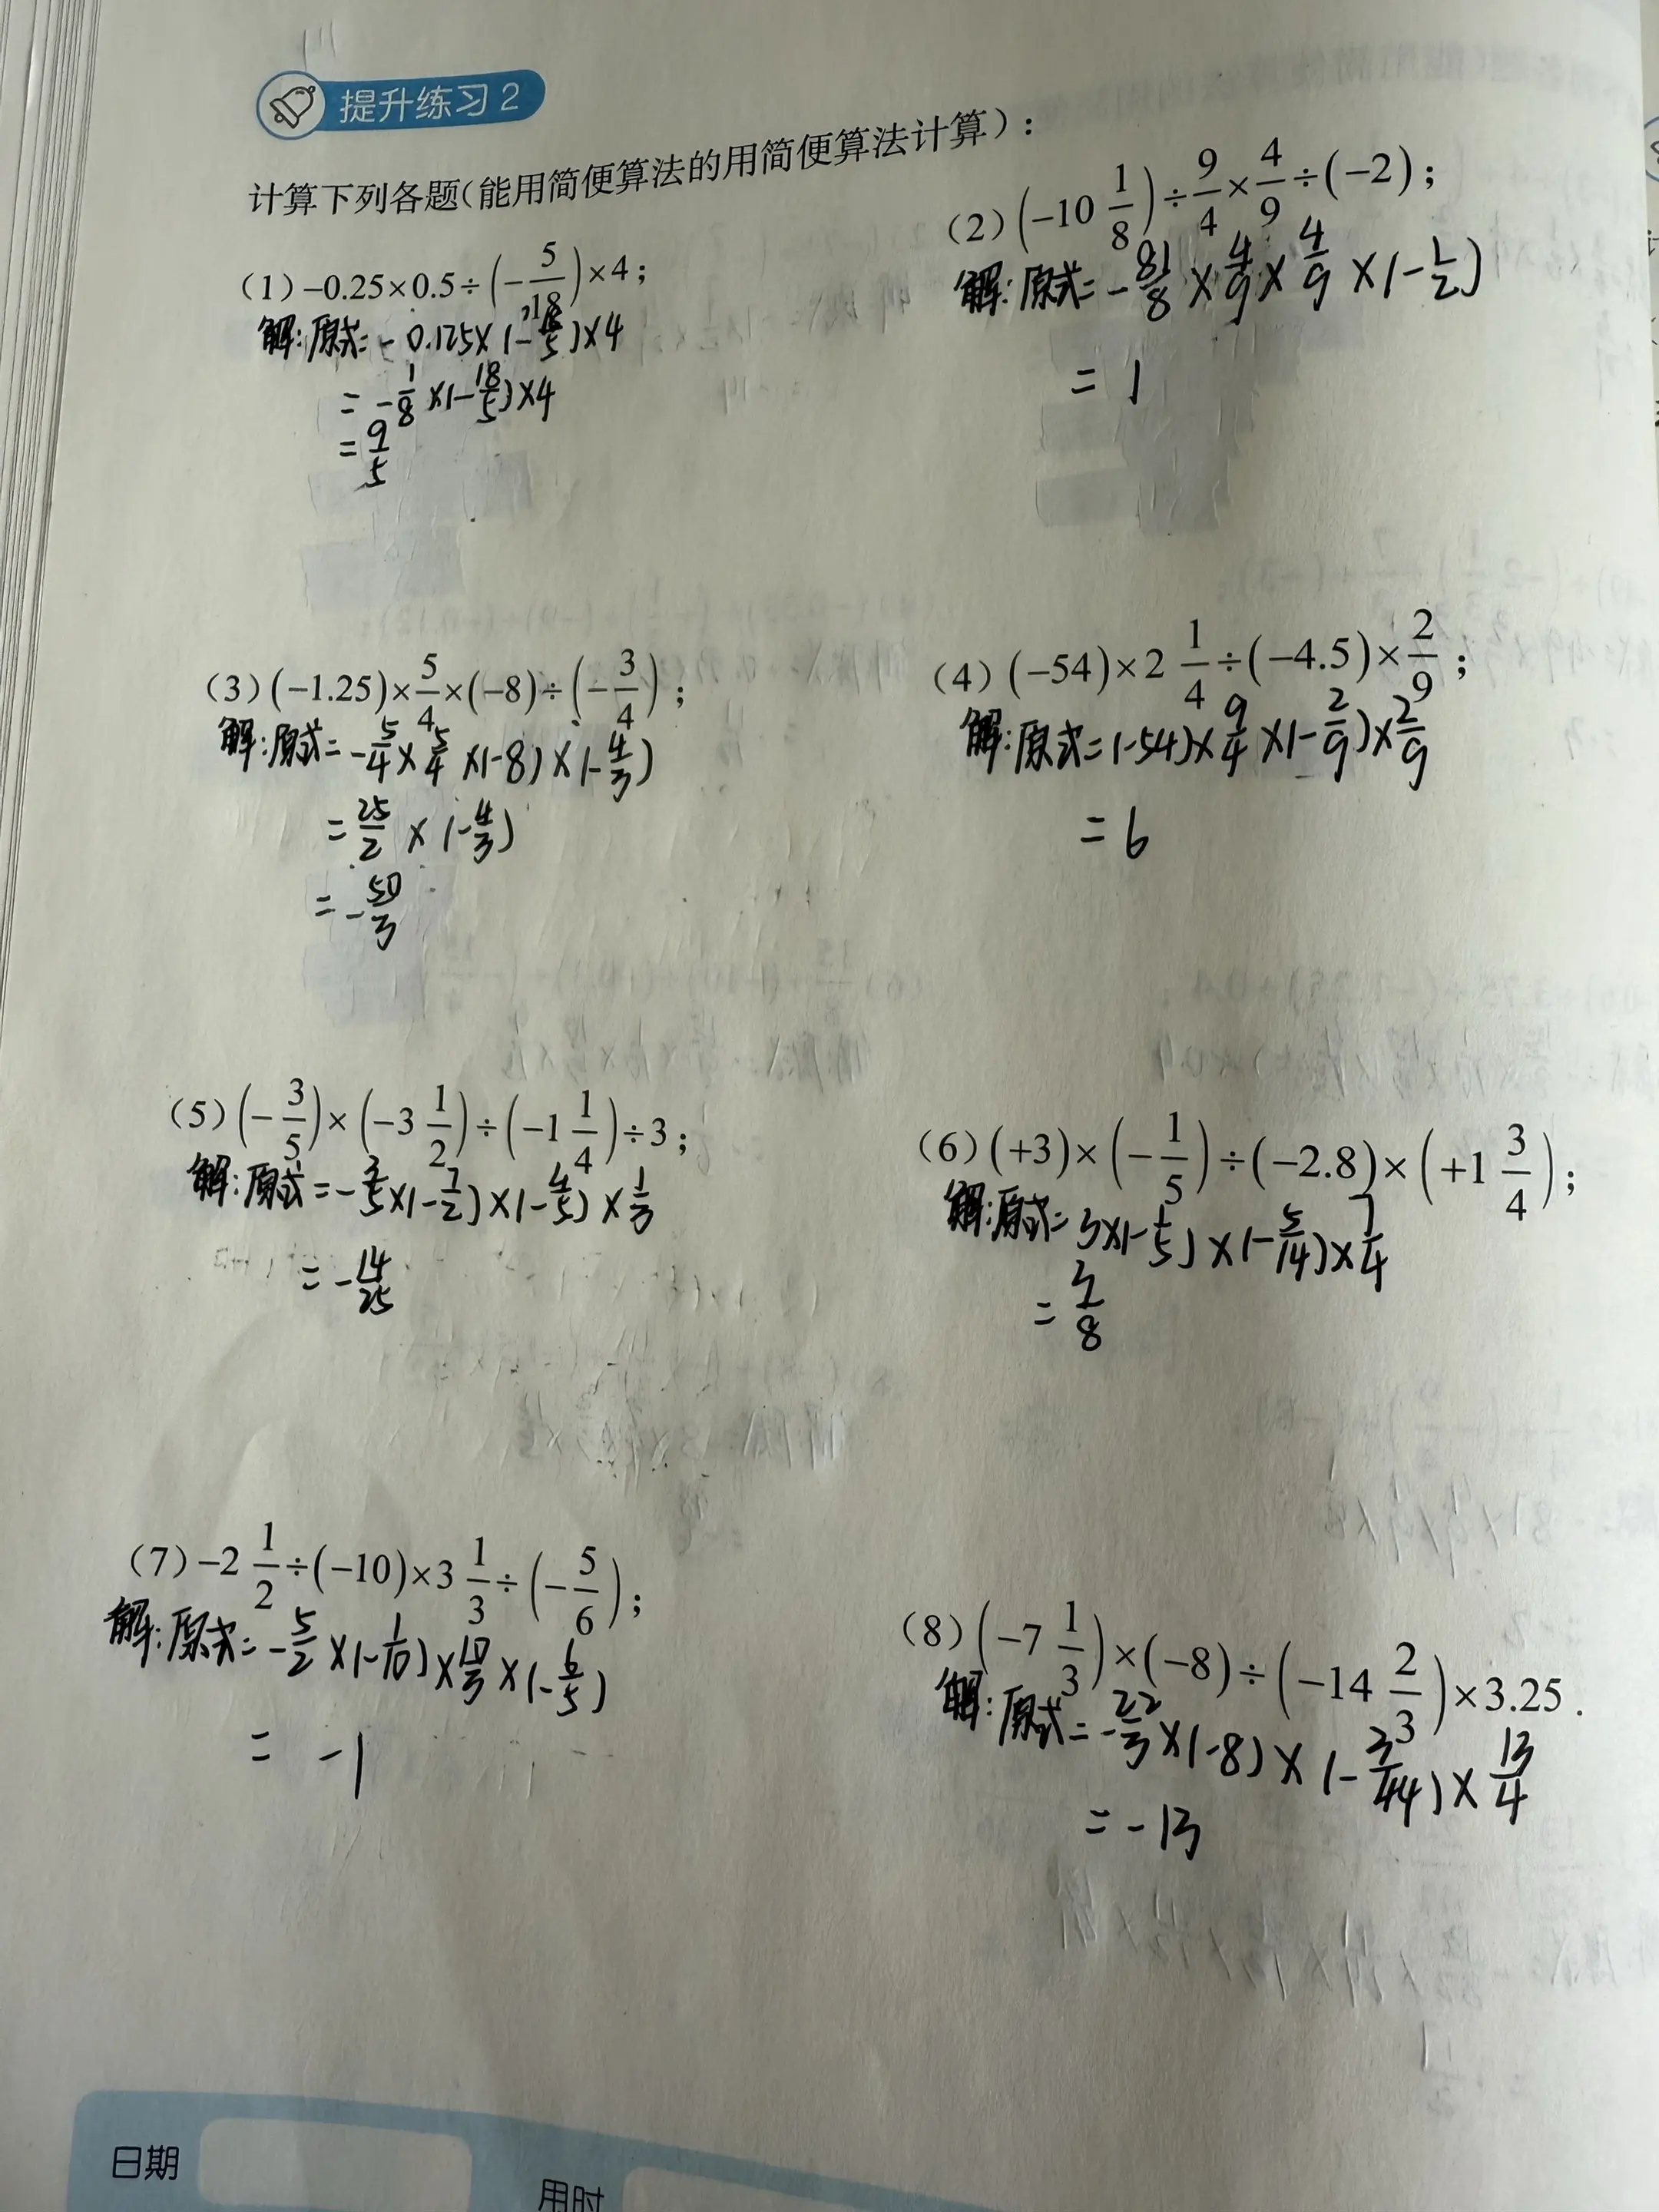 提升练习2
计算下列各题(能用简便算法的用简便算法计算):
(1) -0.25×0.5÷(-5/18)×4;
解:原式=-0.125×(-18/5)×4
=-1/8×(-18/5)×4
=9/5
(2) (-10 1/8)÷9/4×4/9÷(-2);
解:原式=-81/8×4/9×4/9×(-1/2)
=1
(3) (-1.25)×5/4×(-8)÷(-3/4);
解:原式=-5/4×5/4×(-8)×(-4/3)
=25/2×(-4/3)
=-50/3
(4) (-54)×2 1/4÷(-4.5)×2/9;
解:原式=(-54)×9/4×(-2/9)×2/9
=6
(5) (-3/5)×(-3 1/2)÷(-1 1/4)÷3;
解:原式=-3/5×(-7/2)×(-4/5)×1/3
=-14/25
(6) (+3)×(-1/5)÷(-2.8)×(+1 3/4);
解:原式=3×(-1/5)×(-5/14)×7/4
=3/8
(7) -2 1/2÷(-10)×3 1/3÷(-5/6);
解:原式=-5/2×(-1/10)×10/3×(-6/5)
=-1
(8) (-7 1/3)×(-8)÷(-14 2/3)×3.25.
解:原式=-22/3×(-8)×(-3/44)×13/4
=-13
日期
用时